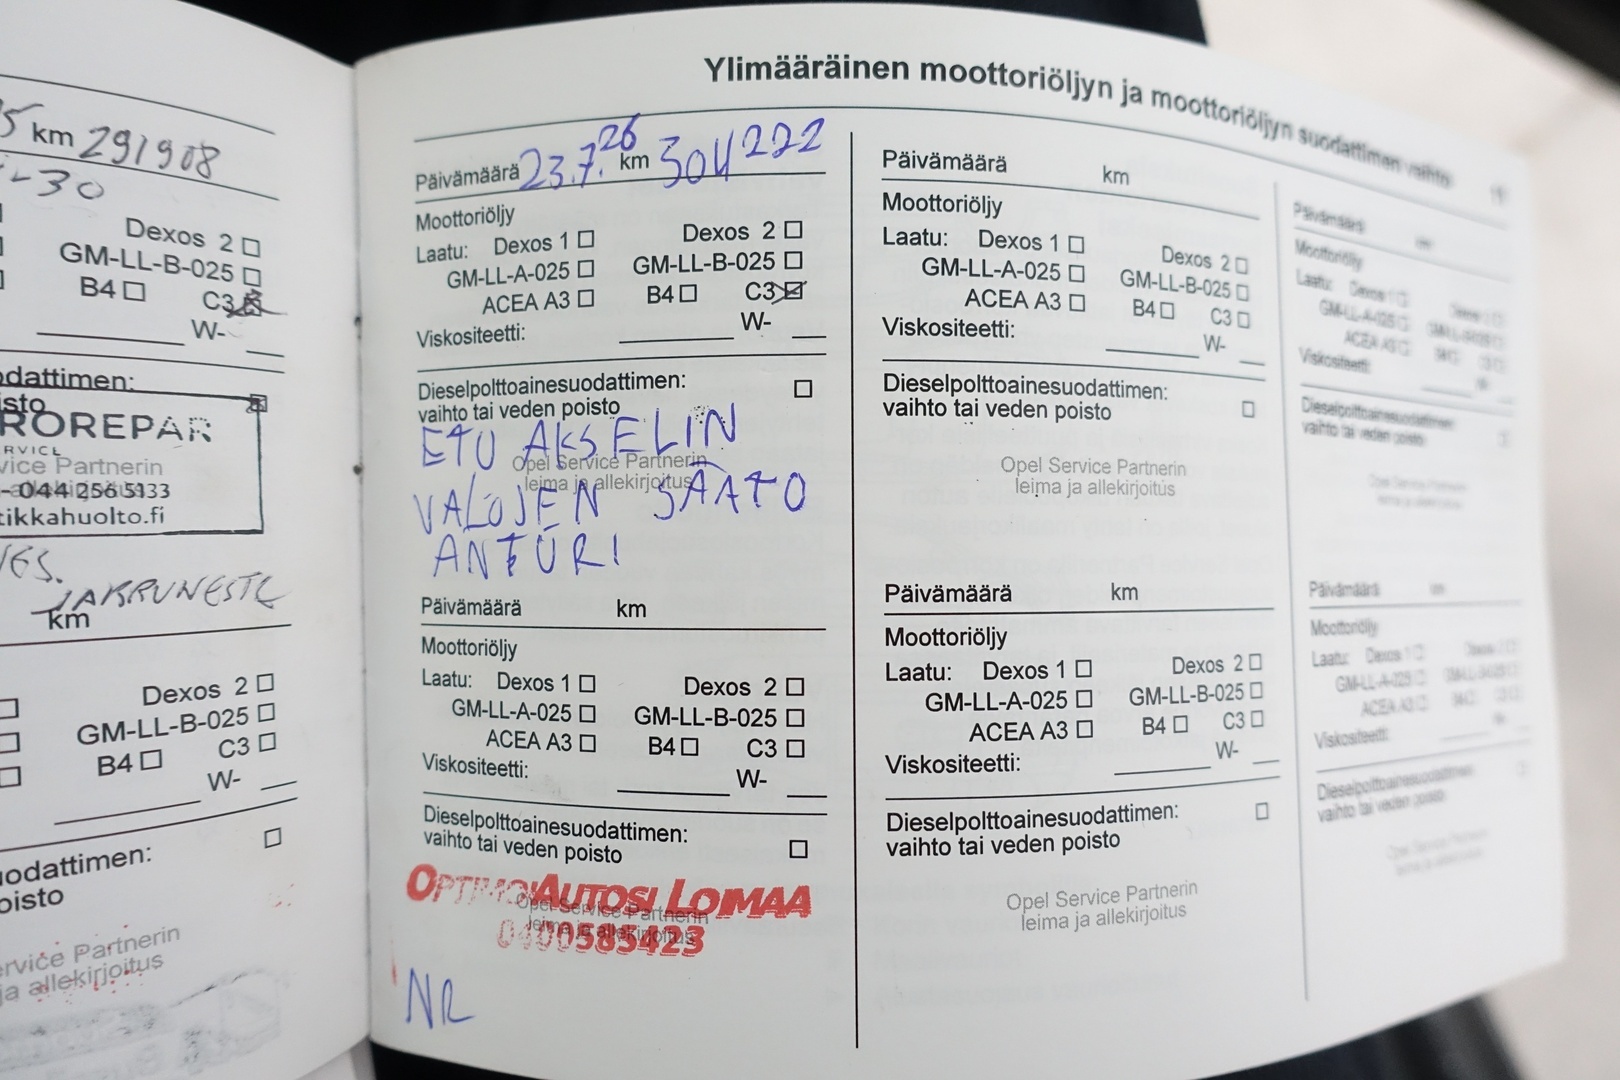 Ylimääräinen moottoriöljyn ja moottoriöljyn suodattimen vaihto
km 291908
-30
Dexos 2
GM-LL-B-025
B4 C3
W-
ROREPAR
044 256 5133
tikkahuolto.fi
JARRUNESTE
km
Dexos 2
GM-LL-B-025
B4 C3
W-
Päivämäärä 23.7.26 km 304222
Moottoriöljy
Laatu: Dexos 1 Dexos 2
GM-LL-A-025 GM-LL-B-025
ACEA A3 B4 C3
Viskositeetti: W-
Dieselpolttoainesuodattimen:
vaihto tai veden poisto
ETU AKSELIN
Opel Service Partnerin
leima ja allekirjoitus
VALOJEN SÄÄTO
ANTURI
Päivämäärä km
Moottoriöljy
Laatu: Dexos 1 Dexos 2
GM-LL-A-025 GM-LL-B-025
ACEA A3 B4 C3
Viskositeetti: W-
Dieselpolttoainesuodattimen:
vaihto tai veden poisto
OPTIMOIAUTOSI LOIMAA
Opel Service Partnerin
leima ja allekirjoitus
0400585423
NR
Päivämäärä km
Moottoriöljy
Laatu: Dexos 1 Dexos 2
GM-LL-A-025 GM-LL-B-025
ACEA A3 B4 C3
Viskositeetti: W-
Dieselpolttoainesuodattimen:
vaihto tai veden poisto
Opel Service Partnerin
leima ja allekirjoitus
Päivämäärä km
Moottoriöljy
Laatu: Dexos 1 Dexos 2
GM-LL-A-025 GM-LL-B-025
ACEA A3 B4 C3
Viskositeetti: W-
Dieselpolttoainesuodattimen:
vaihto tai veden poisto
Opel Service Partnerin
leima ja allekirjoitus
Päivämäärä km
Moottoriöljy
Laatu: Dexos 1 Dexos 2
GM-LL-A-025 GM-LL-B-025
ACEA A3
Viskositeetti:
Dieselpolttoainesuodattimen:
vaihto tai veden poisto
Päivämäärä km
Moottoriöljy
Laatu: Dexos 1 Dexos 2
GM-LL-A-025 GM-LL-B-025
ACEA A3
Viskositeetti:
Dieselpolttoainesuodattimen:
vaihto tai veden poisto